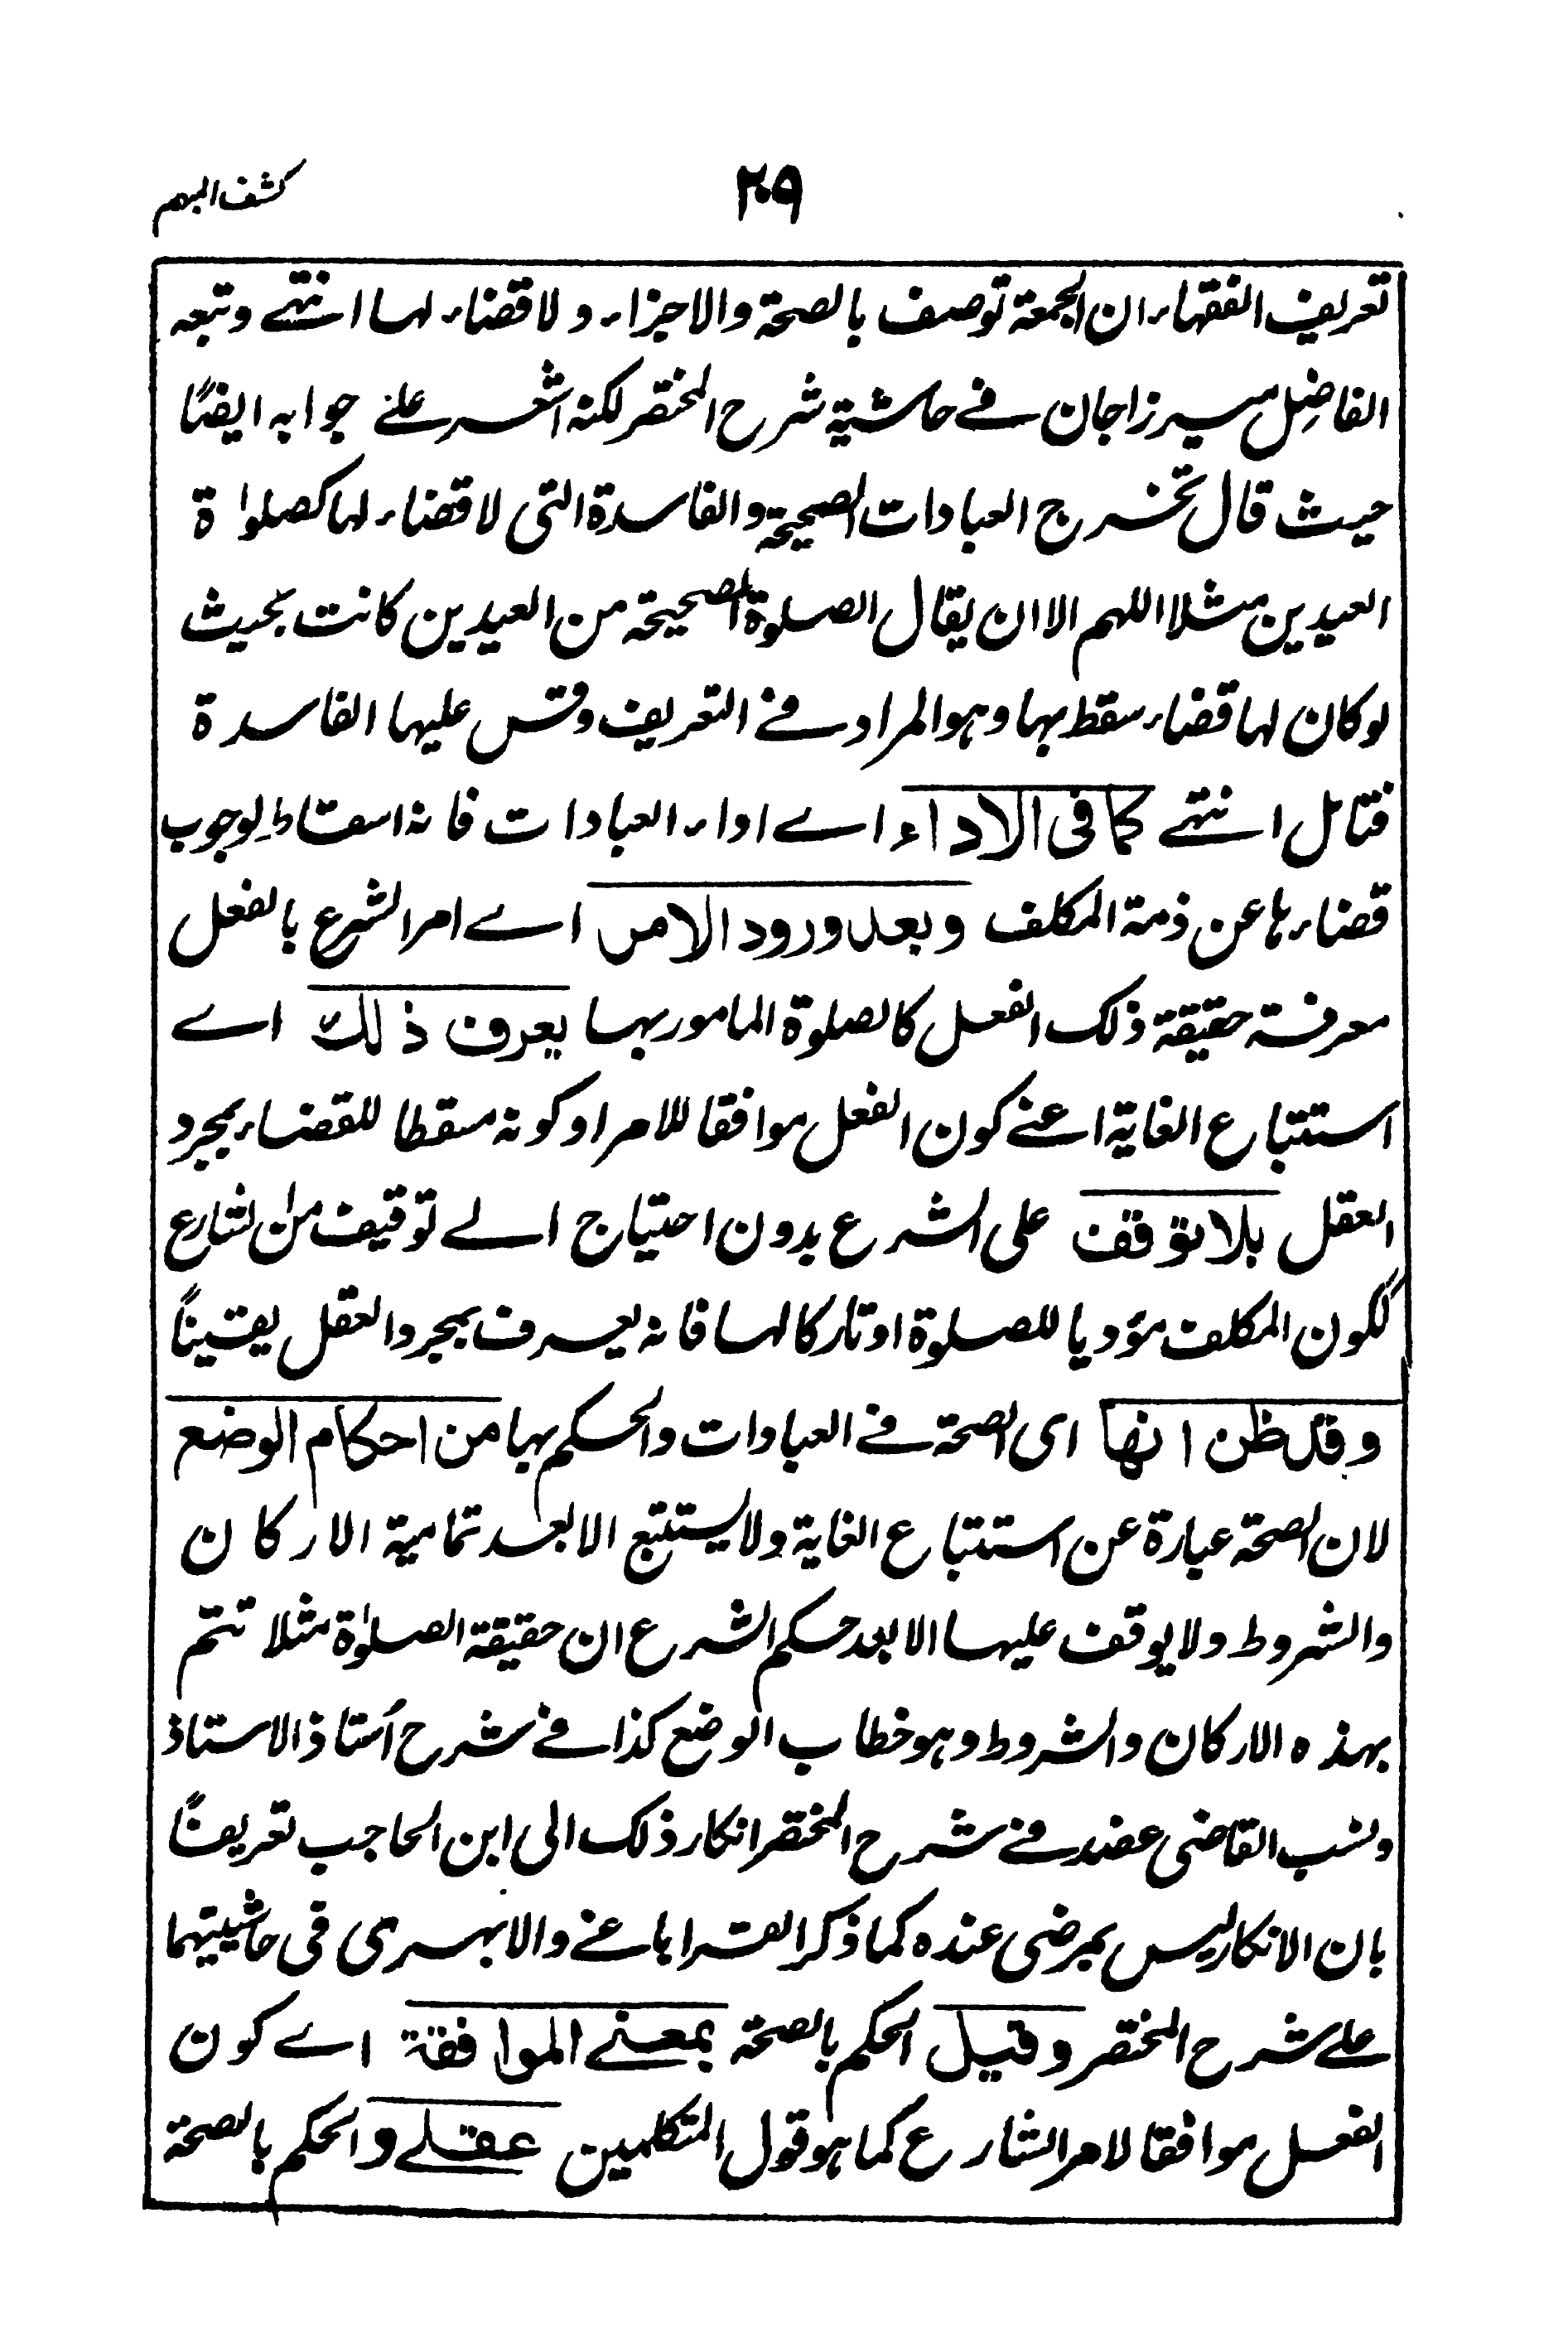 كشف المبهم
٢٠٩
تعريف الفقهاء ان الجمعة توصف بالصحة والاجزاء ولا قضاء لها انتهے وتبعه
الفاضل ميرزاجان فے حاشية شرح المختصر لكنه اشعر علے جوابه ايضًا
حيث قال تخرج العبادات الصحيحة والفاسدة التى لا قضاء لها كصلواة
العيدين مثلا اللهم الا ان يقال الصلوة الصحيحة من العيدين كانت بحيث
لو كان لها قضاء سقط بها وهو المراد فے التعريف وقس عليها الفاسدة
فتامل انتهے كما فى الاداء اے اداء العبادات فانه اسقاط لوجوب
قضاءها عن ذمة المكلف وبعد ورود الامر اے امر الشرع بالفعل
معرفة حقيقة ذلك الفعل كالصلوة المامور بها يعرف ذلك اے
استتباع الغاية اعنے كون الفعل موافقا للامر او كونه مسقطا للقضاء بمجرد
العقل بلا توقف على الشرع بدون احتياج الے توقيف من الشارع
ككون المكلف مؤديا للصلوة او تاركا لها فانه يعرف بمجرد العقل يقينًا
وقد ظن انها اى الصحة فے العبادات والحكم بها من احكام الوضع
لان الصحة عبارة عن استتباع الغاية ولا يستتبع الا بعد تمامية الاركان
والشروط ولا يوقف عليها الا بعد حكم الشرع ان حقيقة الصلوٰة مثلا تتم
بهذه الاركان والشروط وهو خطاب الوضع كذا فے شرح اُستاذ الاستاذ
ونسب القاضى عضد فے شرح المختصر انكار ذلك الى ابن الحاجب تعريضًا
بان الانكار ليس بمرضى عنده كما ذكر القراباغے والابهرى فى حاشيتهما
علے شرح المختصر وقيل الحكم بالصحة بمعنے الموافقة اے كون
الفعل موافقا لامر الشارع كما هو قول المتكلمين عقلے والحكم بالصحة